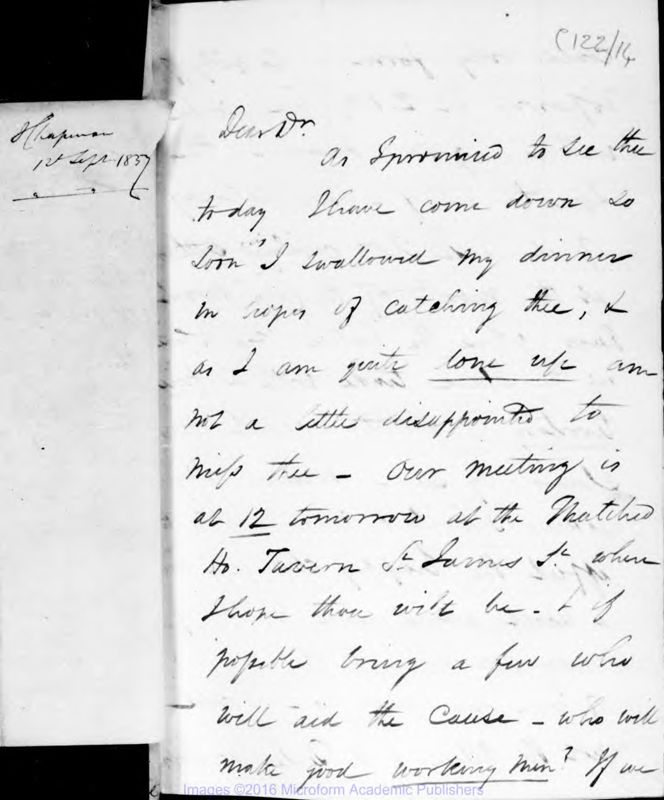 C122/14
J Chapman
1st Sept 1857
Dear Dr.
As I promised to see thee
today I have come down so
soon's I swallowed my dinner
in hopes of catching thee, &
as I am quite done up am
not a little disappointed to
miss thee - Our meeting is
at 12 tomorrow at the Thatched
Ho. Tavern St James St. where
I hope thou wilt be. & if
possible bring a few who
will aid the Cause - who will
make good working men? If we
Images ©2016 Microform Academic Publishers